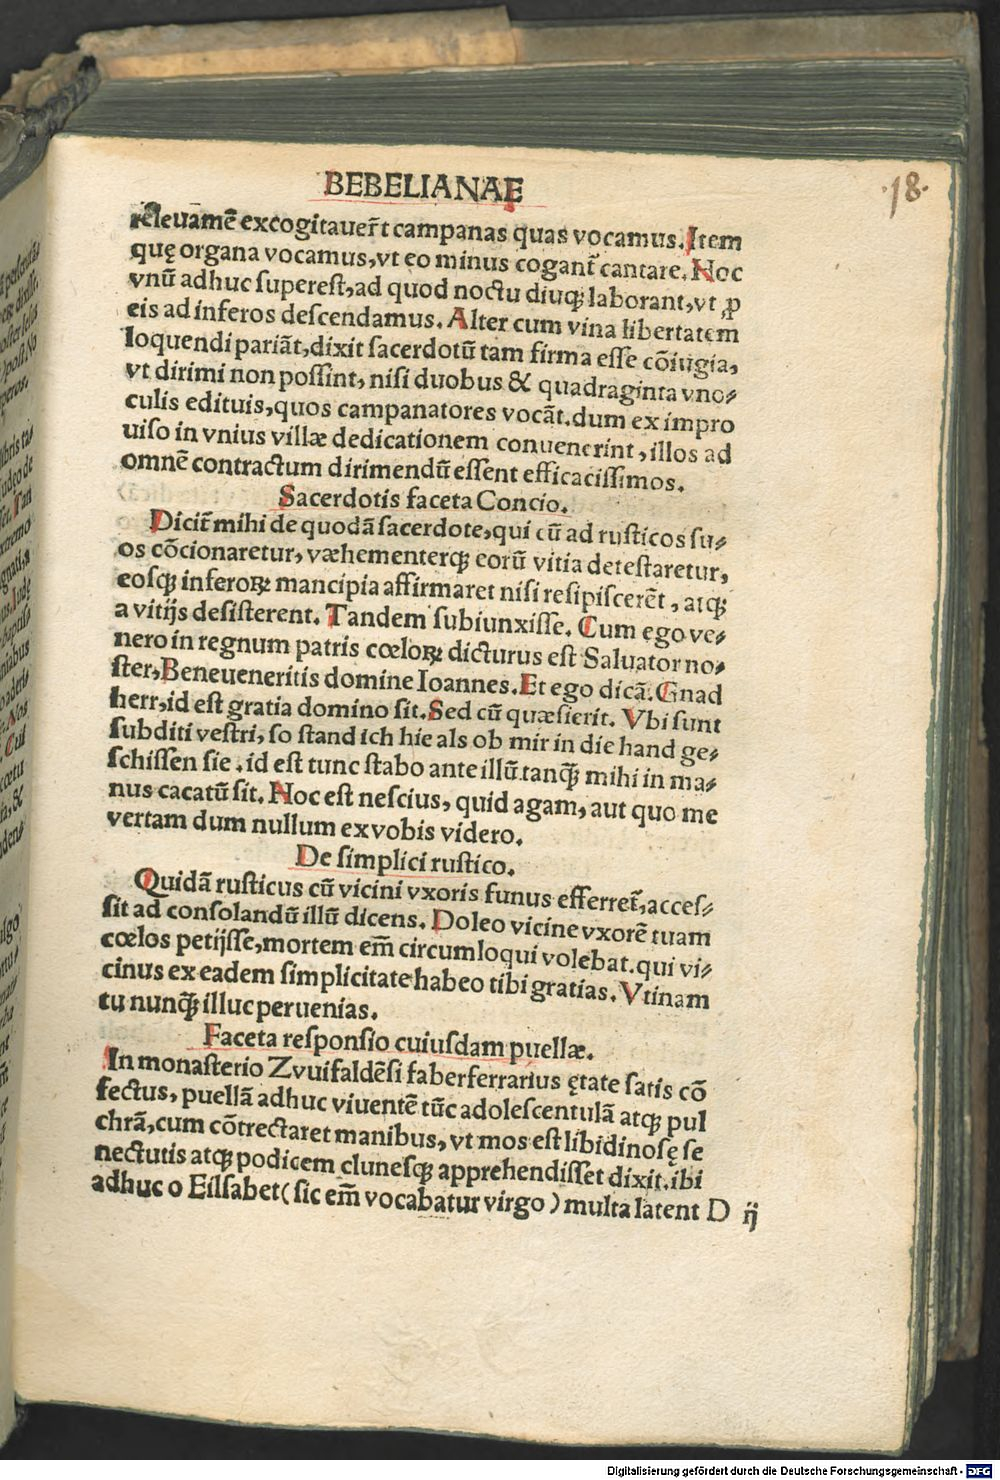 BEBELIANAE
·18·
releuamē excogitauer̄t campanas quas vocamus. Item
quę organa vocamus, vt eo minus cogant̄ cantare. Noc
vnū adhuc superest, ad quod noctu diuqꝫ laborant, vt ꝓ
eis ad inferos descendamus. Alter cum vina libertatem
loquendi pariāt, dixit sacerdotū tam firma esse cōiugia,
vt dirimi non possint, nisi duobus & quadraginta vno⸗
culis edituis, quos campanatores vocāt. dum ex impro
uiso in vnius villæ dedicationem conuenerint, illos ad
omnē contractum dirimendū essent efficacissimos.
Sacerdotis faceta Concio.
Dicit̄ mihi de quodā sacerdote, qui cū ad rusticos su⸗
os cōcionaretur, væhementerqꝫ eorū vitia detestaretur,
eosqꝫ inferoꝝ mancipia affirmaret nisi resipiscerēt, atqꝫ
a vitijs desisterent. Tandem subiunxisse. Cum ego ve⸗
nero in regnum patris cœloꝝ dicturus est Saluator no⸗
ster, Beneueneritis domine Ioannes. Et ego dicā. Gnad
herr, id est gratia domino sit. Sed cū quæsierit. Vbi sunt
subditi vestri, so stand ich hie als ob mir in die hand ge⸗
schissen sie. id est tunc stabo ante illū. tanq̄ꝫ mihi in ma⸗
nus cacatū sit. Noc est nescius, quid agam, aut quo me
vertam dum nullum ex vobis videro.
De simplici rustico.
Quidā rusticus cū vicini vxoris funus efferret̄, acces⸗
sit ad consolandū illū dicens. Doleo vicine vxorē tuam
cœlos petijsse, mortem em̄ circumloqui volebat. qui vi⸗
cinus ex eadem simplicitate habeo tibi gratias. Vtinam
tu nunq̄ꝫ illuc peruenias.
Faceta responsio cuiusdam puellæ.
In monasterio Zvuifaldēsi faber ferrarius ętate satis cō
fectus, puellā adhuc viuentē tūc adolescentulā atqꝫ pul
chrā, cum cōtrectaret manibus, vt mos est libidinosę se
nectutis atqꝫ podicem clunesqꝫ apprehendisset dixit. ibi
adhuc o Eilsabet (sic em̄ vocabatur virgo) multa latent D ij
Digitalisierung gefördert durch die Deutsche Forschungsgemeinschaft - DFG